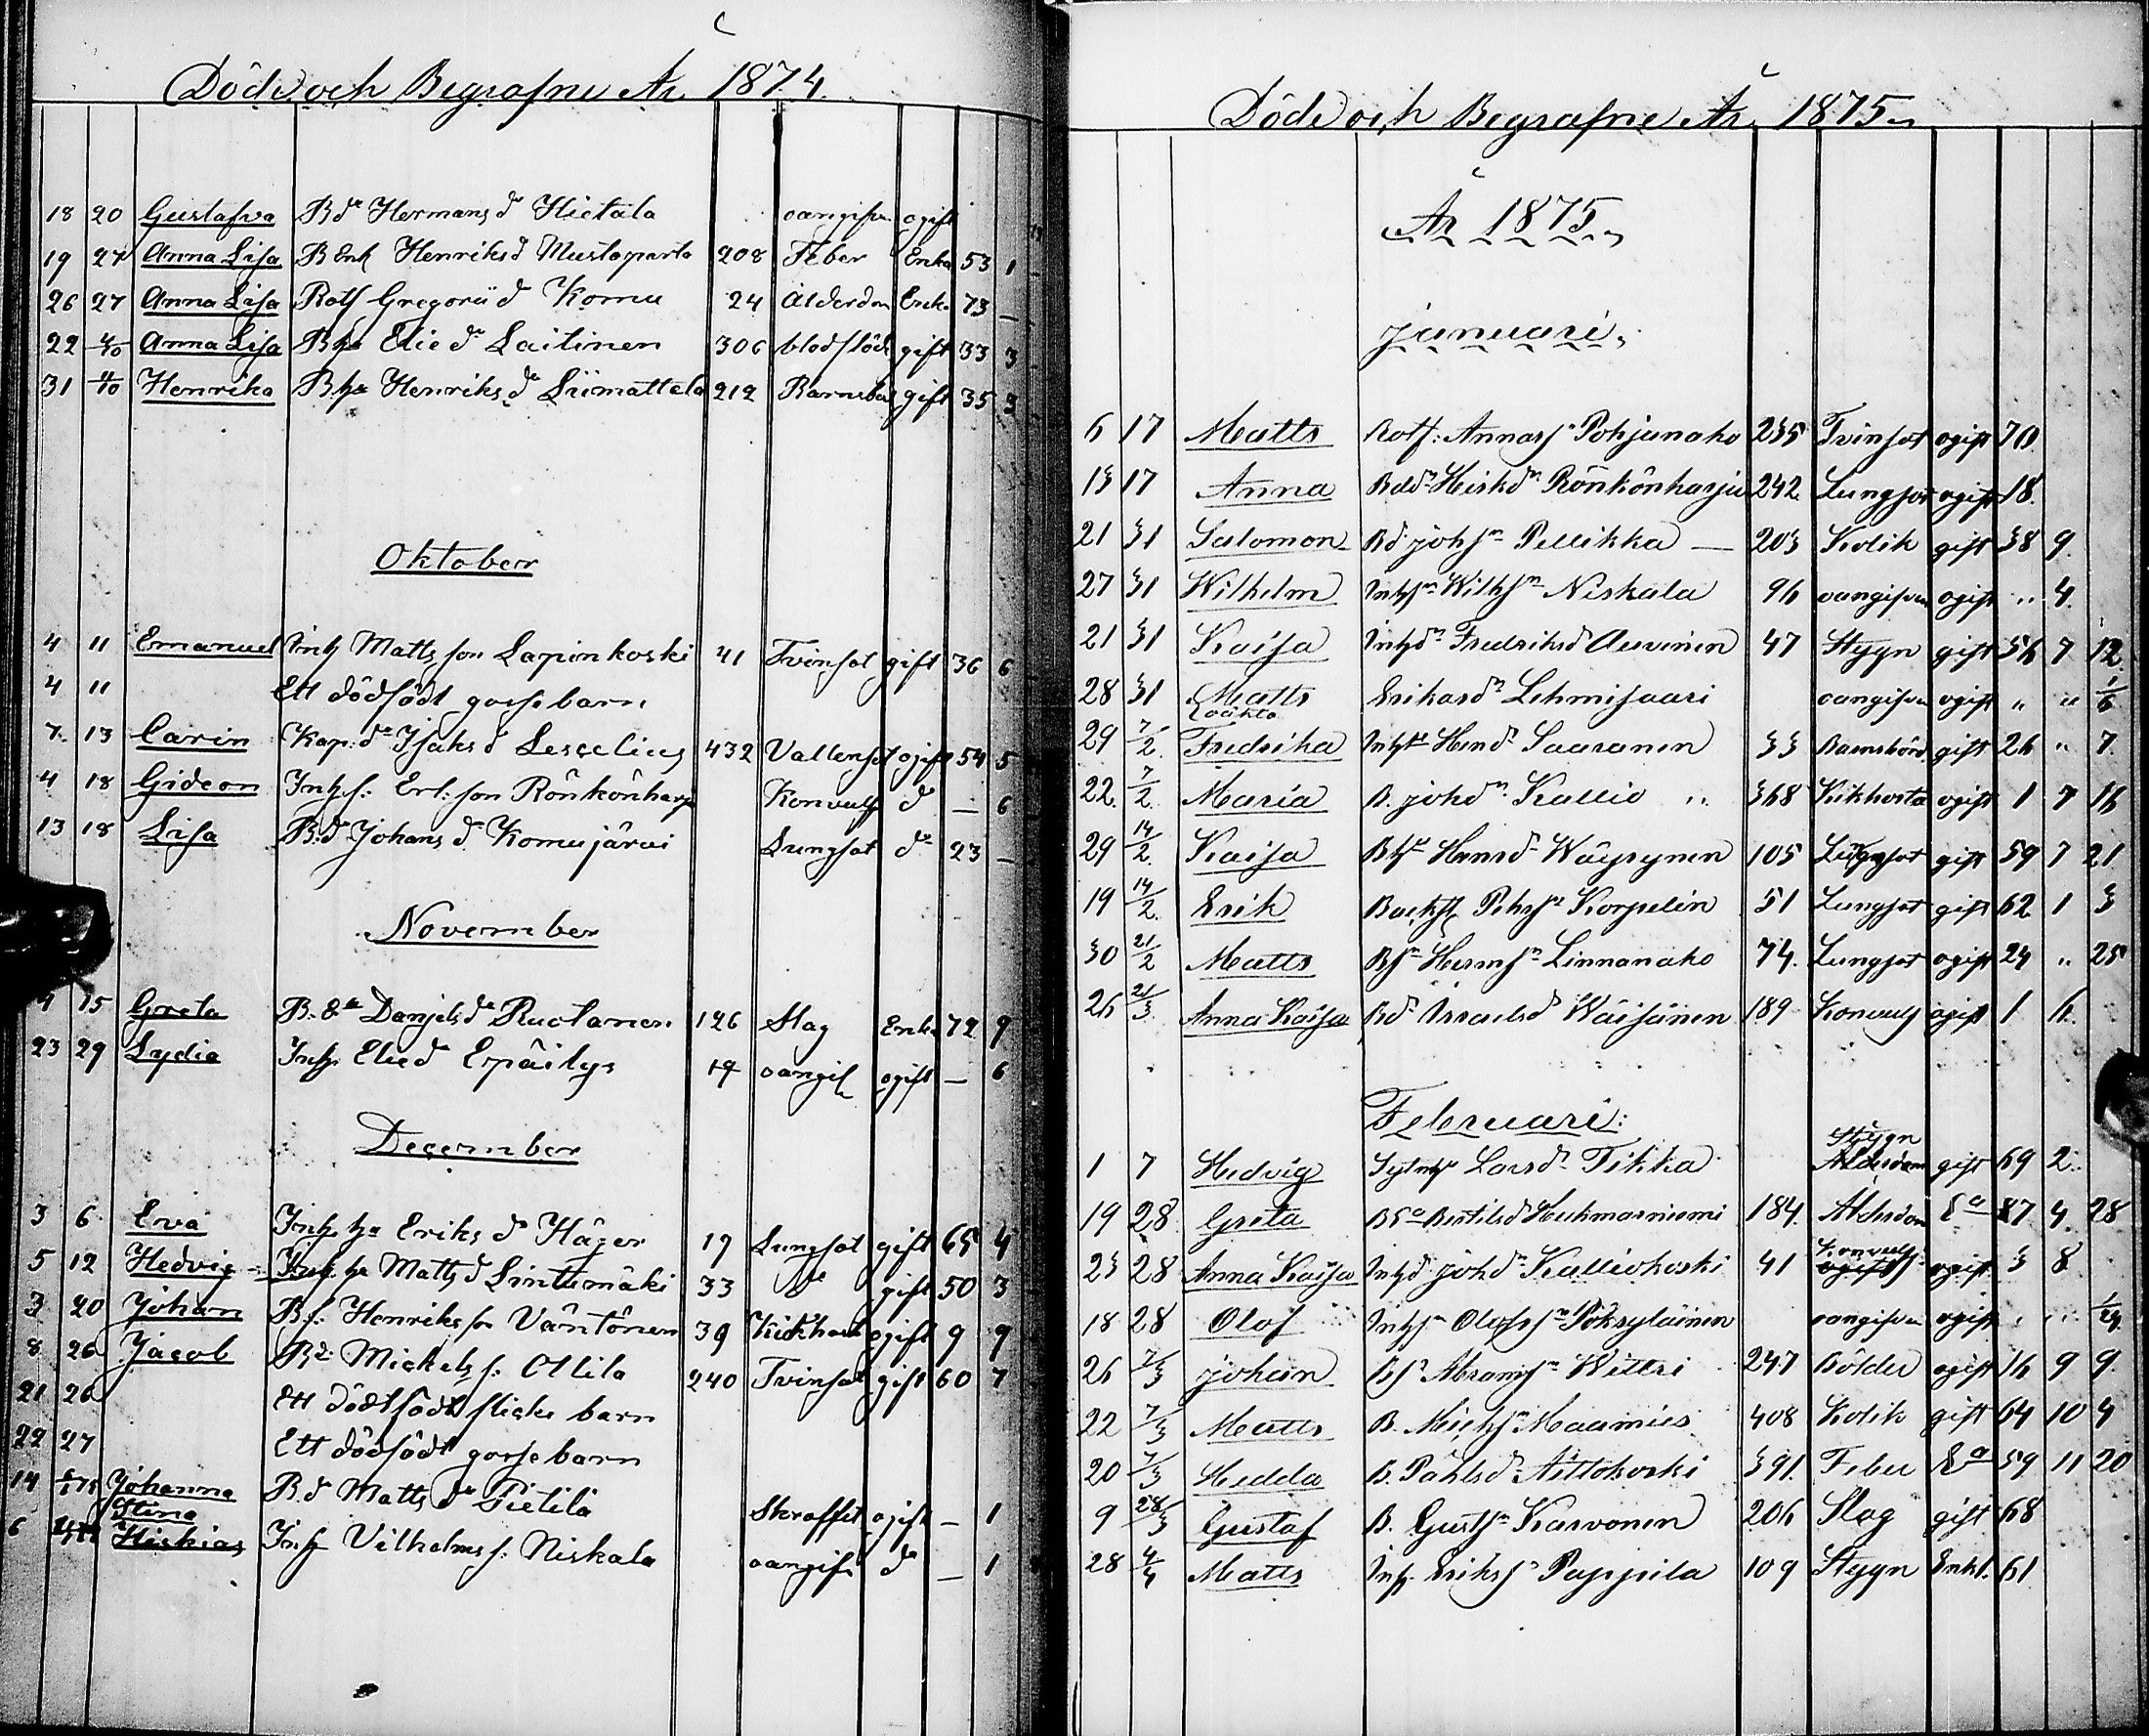 Döde och Begrafne År 1874.
18 20 Gustafva Bdr Hermans dr Hietala oangifven ogift
19 27 Anna Lisa B Enk Henriksd Mustaparta 208 Feber Enka 53 1
26 27 Anna Lisa Rotf Gregorii d Komu 24 Ålderdom Enk. 73 –
22 4/10 Anna Lisa Bha Elie dr Laitinen 306 blodflöde gift 33 3
31 4/10 Henrika Bha Henriks dr Liimattala 212 Barnsbd gift 35 3
Oktober
4 11 Emanuel Inh Matts son Lapinkoski 41 Tvinsot gift 36 6
4 11 Ett dödfödt gosse barn
7 13 Carin Kap: dr Isaks d Lescelius 432 Vattensot ogift 54 5
4 18 Gideon Inh s: Er!: son Rönkönharju Konvulf do – 6
13 18 Lisa B:d Johans d Komujärvi Lungsot do 23 –
November
4 15 Greta B. Ea Danjels dr Ruotanen 126 Slag Enka 72 9
23 29 Lydia Inh. Elie d Epäilys 19 oangif ogift – 6
December
3 6 Eva Inh ha Eriks d Häger 19 Lungsot gift 65 4
5 12 Hedvig Inh ha Matts d Sintumäki 33 do gift 50 3
3 20 Johan B s. Henriks son Väntönen 39 Kikhosta ogift 9 9
8 26 Jacob Bd: Mickels s: Ollila 240 Tvinsot gift 60 7
21 26 Ett dödtfödt flicke barn
22 27 Ett dödfödt gosse barn
14 Johanna Stina B.d Matts dr Pietilä Skroffel ogift – 1
6 Hiskias Inh Vilhelms s: Niskala oangif do – 1
Döde och Begrafne År 1875.
År 1875.
januari.
6 17 Matts Rotf: Annass Pohjanaho 235 Tvinsot ogift 70.
13 17 Anna Bdd Heikdr Rönkönharju 242 Lungsot ogift 18.
21 31 Salomon Bd johsn Pellikka – 203 Kolik gift 38 9.
27 31 Wilhelm Inhsn Wilhsn Niskala 96 oangifven ogift " 4.
21 31 Kaisa Inhdr Fredriksd Auvinen 47 Stygn gift 56 7 12
28 31 Matts Erikasdr Lehmisaari oangifven ogift " " 1/6
oäkta
29 7/2 Fredrika Inhha Hendr Saaranen 33 Barnsbörd gift 26 " 7.
22. 7/2 Maria B. johdr Kallio " 368 Kikhosta ogift 1 7 16
29 14/2 Kaisa Bha Hansdr Wäyrynen 105 Lungsot gift 59 7 21
19 14/2 Erik Backst Pehrsn Korpelin 51 Lungsot gift 62 1 3
30 21/2 Matts Bsn Hermsn Linnanaho 74. Lungsot ogift 24 " 25
26 21/3 Anna Kaisa Bdr Israelsd Wäisänen 189 Konvuls ogift 1 6.
Februari:
1 7 Hedvig Larsdr Tikka Stygn Ålderdom gift 69 2.
19 28 Greta BEa Bertilsd Huhmarniemi 184. Ålderdom Ea 87 4. 28
23 28 Anna Kaisa Inhd johdr Kalliokoski 41 Konvuls ogift 3 8
18 28 Olof Inhsn Olofssn Pöksyläinen oangifven ogift " " 1/24
26 7/3 johan Bsn Abramsn Wittri 247 Bölder ogift 16 9 9.
22 7/3 Matts B. Michsn Maamies 408 Kolik gift 64 10 4
20 7/3 Hedda B. Påhlsd Aittokoski 391. Feber Ea 59 11 20
9 28/3 Gustaf B. Gustsn Karvonen 206 Slag gift 68
28 4/4 Matts Inh. Erikssn Pappila 109 Stygn Enkl. 61